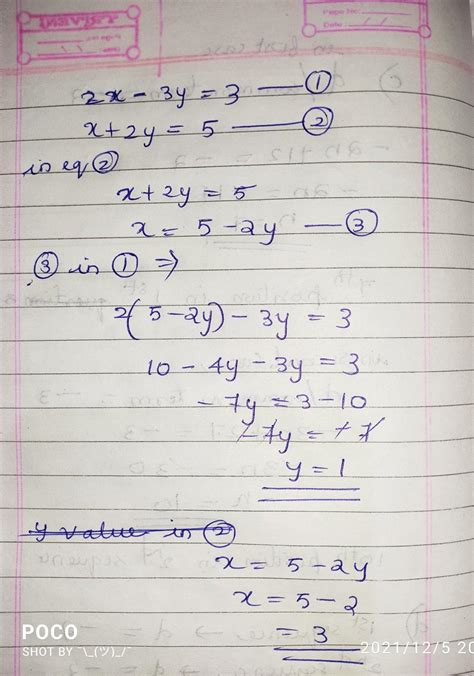 Page No:
Date:
2x - 3y = 3 — ①
x + 2y = 5 — ②
in eq ②
x + 2y = 5
x = 5 - 2y — ③
③ in ① ⇒
2(5 - 2y) - 3y = 3
10 - 4y - 3y = 3
- 7y = 3 - 10
- 7y = + 7
y = 1
y value in ②
x = 5 - 2y
x = 5 - 2
= 3
POCO
SHOT BY ¯\_(ツ)_/¯
2021/12/5 20